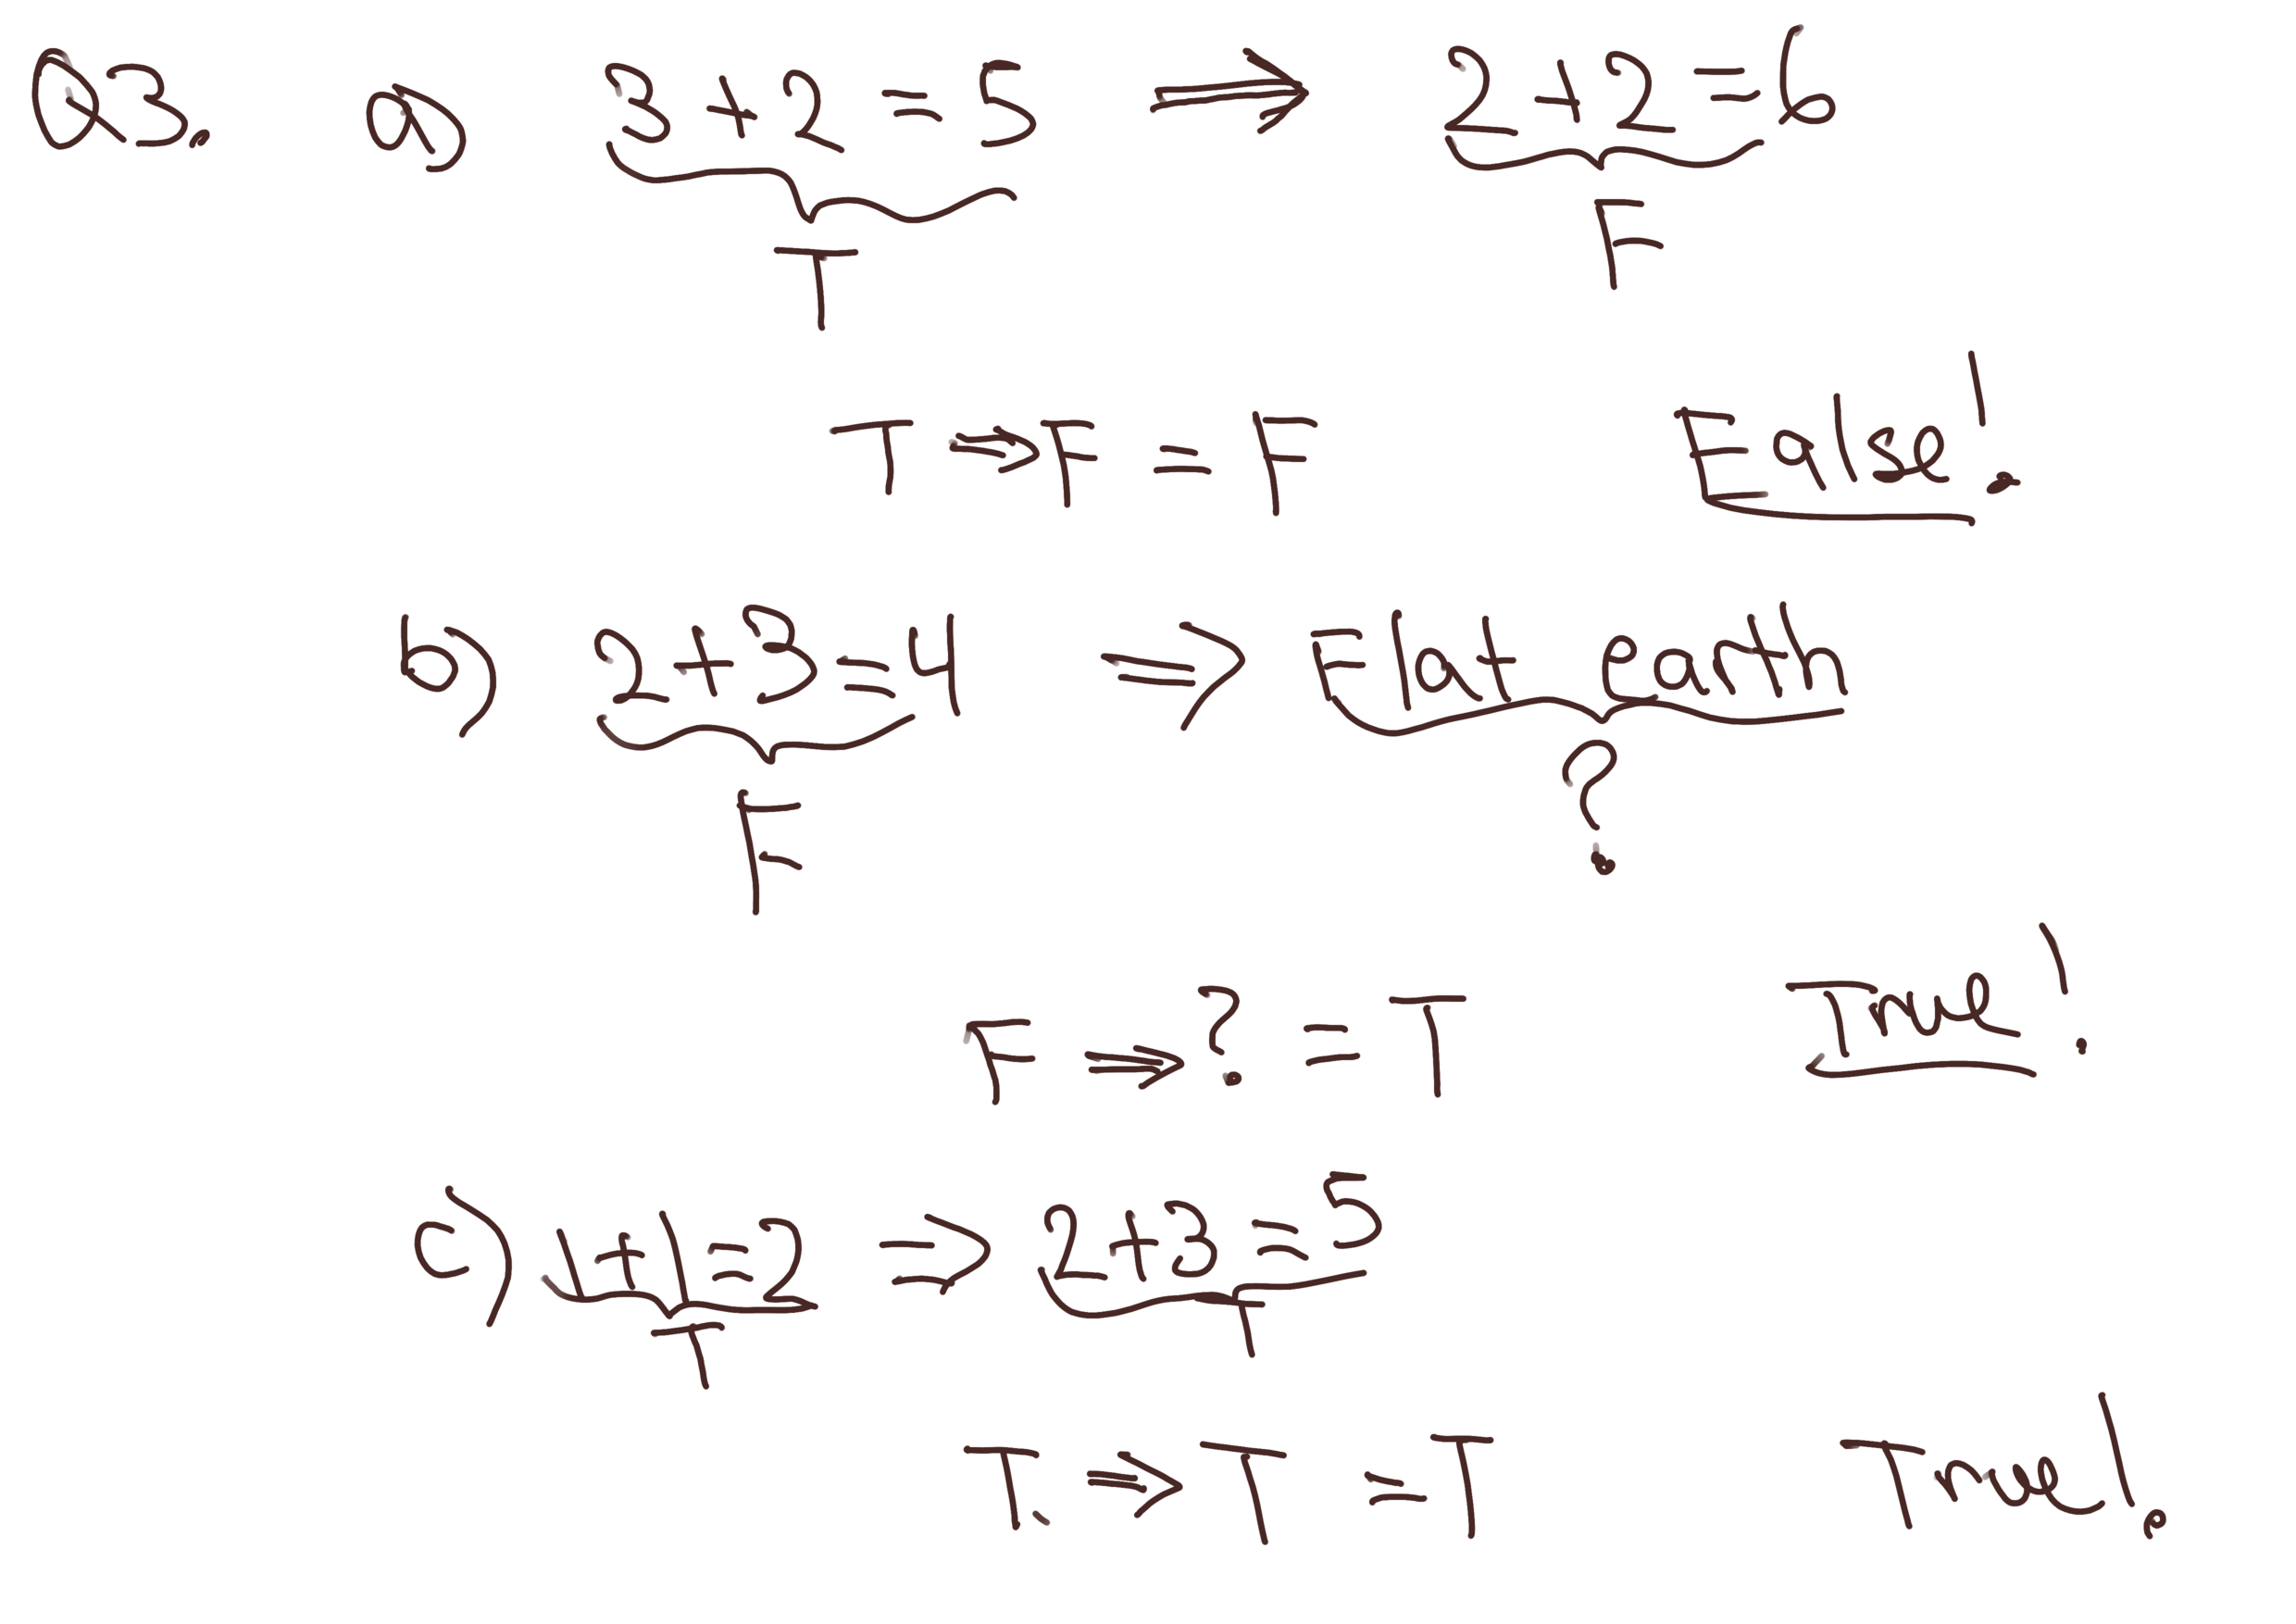 Q3. a) 3+2=5 ⇒ 2+2=6
T F
T ⇒ F = F False!
b) 2+3=4 ⇒ Flat earth
F ?
F ⇒ ? = T True!
c) 1+1=2 ⇒ 2+3=5
T T
T. ⇒ T = T True!